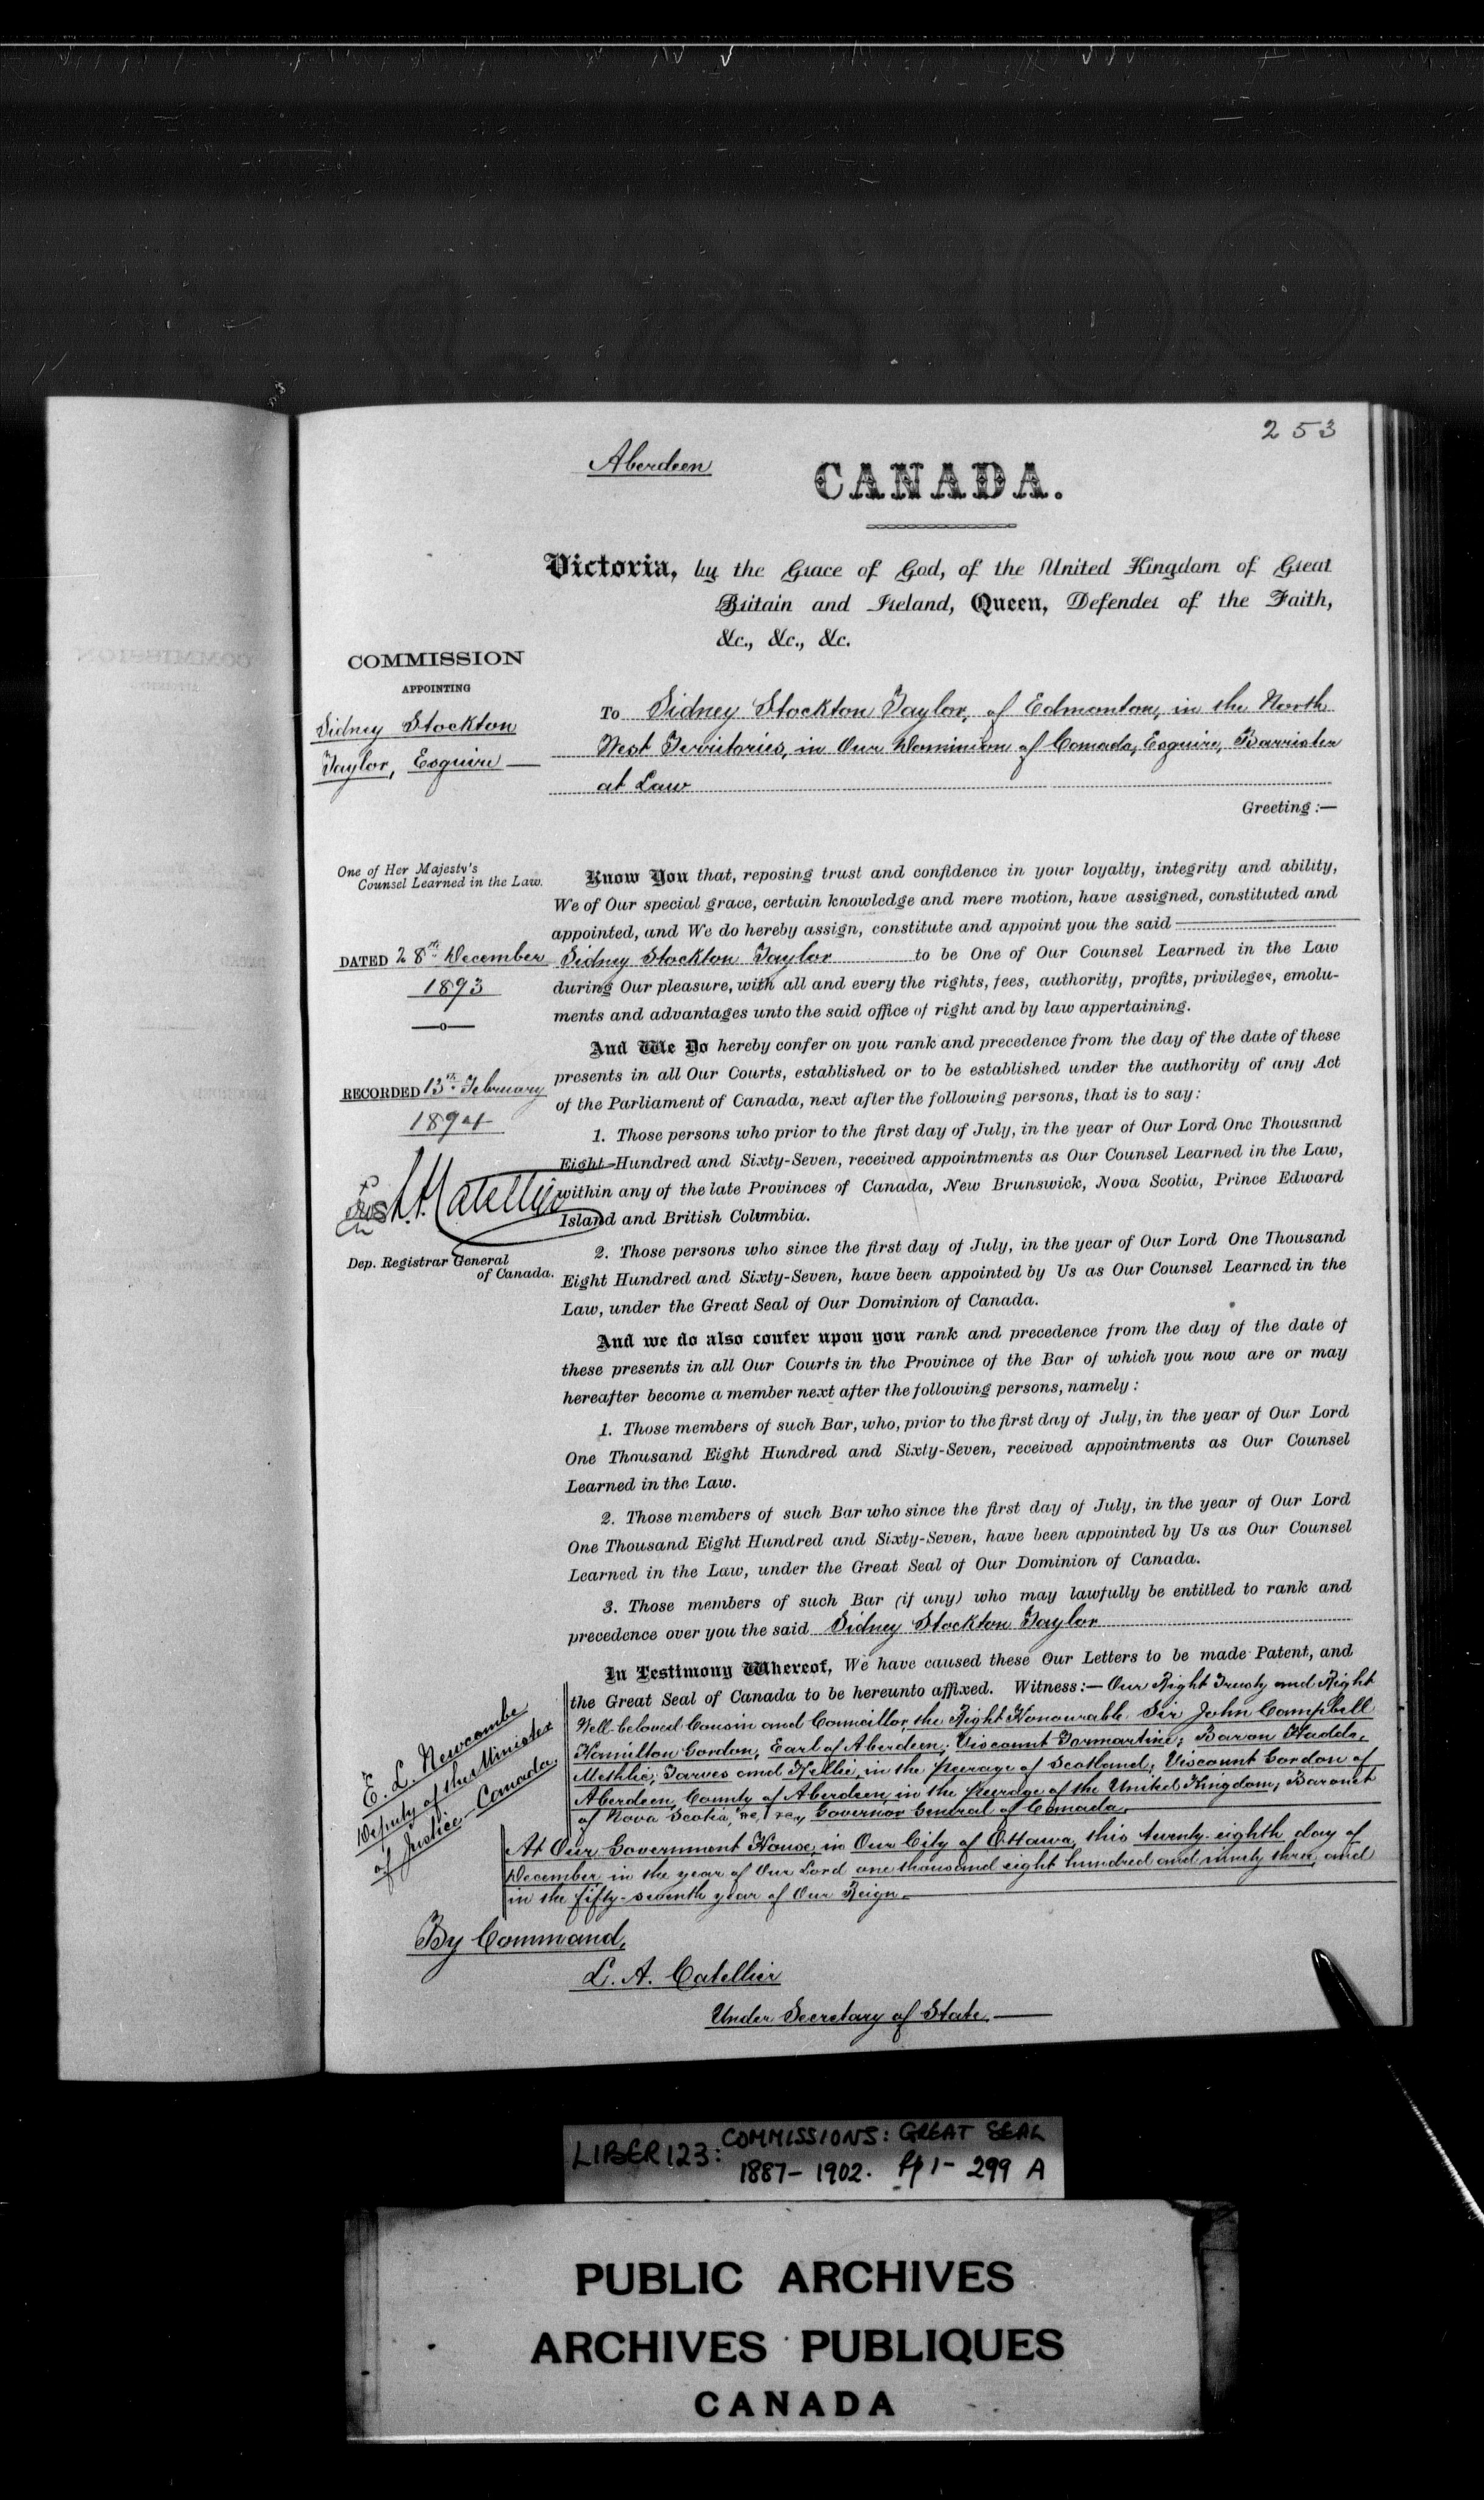 253
Aberdeen
CANADA.
Victoria, by the Grace of God, of the United Kingdom of Great
Britain and Ireland, Queen, Defender of the Faith,
&c., &c., &c.
COMMISSION
APPOINTING
Sidney Stockton
Taylor, Esquire
To Sidney Stockton Taylor, of Edmonton, in the North
West Territories, in Our Dominion of Canada, Esquire, Barrister
at Law
Greeting :—
One of Her Majesty's
Counsel Learned in the Law.
DATED 28th December
1893
RECORDED 13th February
1894
L. A. Catellier
Dep. Registrar General
of Canada.
Know You that, reposing trust and confidence in your loyalty, integrity and ability,
We of Our special grace, certain knowledge and mere motion, have assigned, constituted and
appointed, and We do hereby assign, constitute and appoint you the said
Sidney Stockton Taylor to be One of Our Counsel Learned in the Law
during Our pleasure, with all and every the rights, fees, authority, profits, privileges, emolu-
ments and advantages unto the said office of right and by law appertaining.
And We Do hereby confer on you rank and precedence from the day of the date of these
presents in all Our Courts, established or to be established under the authority of any Act
of the Parliament of Canada, next after the following persons, that is to say:
1. Those persons who prior to the first day of July, in the year of Our Lord One Thousand
Eight Hundred and Sixty-Seven, received appointments as Our Counsel Learned in the Law,
within any of the late Provinces of Canada, New Brunswick, Nova Scotia, Prince Edward
Island and British Columbia.
2. Those persons who since the first day of July, in the year of Our Lord One Thousand
Eight Hundred and Sixty-Seven, have been appointed by Us as Our Counsel Learned in the
Law, under the Great Seal of Our Dominion of Canada.
And we do also confer upon you rank and precedence from the day of the date of
these presents in all Our Courts in the Province of the Bar of which you now are or may
hereafter become a member next after the following persons, namely:
1. Those members of such Bar, who, prior to the first day of July, in the year of Our Lord
One Thousand Eight Hundred and Sixty-Seven, received appointments as Our Counsel
Learned in the Law.
2. Those members of such Bar who since the first day of July, in the year of Our Lord
One Thousand Eight Hundred and Sixty-Seven, have been appointed by Us as Our Counsel
Learned in the Law, under the Great Seal of Our Dominion of Canada.
3. Those members of such Bar (if any) who may lawfully be entitled to rank and
precedence over you the said Sidney Stockton Taylor
In Testimony Whereof, We have caused these Our Letters to be made Patent, and
the Great Seal of Canada to be hereunto affixed. Witness:— Our Right Trusty and Right
Well-beloved Cousin and Councillor, the Right Honourable Sir John Campbell
Hamilton Gordon, Earl of Aberdeen; Viscount Formartine; Baron Haddo,
Methlic, Tarves and Kellie, in the Peerage of Scotland; Viscount Gordon of
Aberdeen, County of Aberdeen, in the Peerage of the United Kingdom; Baronet
of Nova Scotia, &c, &c, Governor General of Canada.
At Our Government House, in Our City of Ottawa, this twenty-eighth day of
December in the year of Our Lord one thousand eight hundred and ninety three, and
in the fifty-seventh year of Our Reign.
E. L. Newcombe
Deputy of the Minister
of Justice—Canada.
By Command,
L. A. Catellier
Under Secretary of State.
LIBER 123: COMMISSIONS: GREAT SEAL
1887–1902. pp 1– 299 A
PUBLIC ARCHIVES
ARCHIVES PUBLIQUES
CANADA